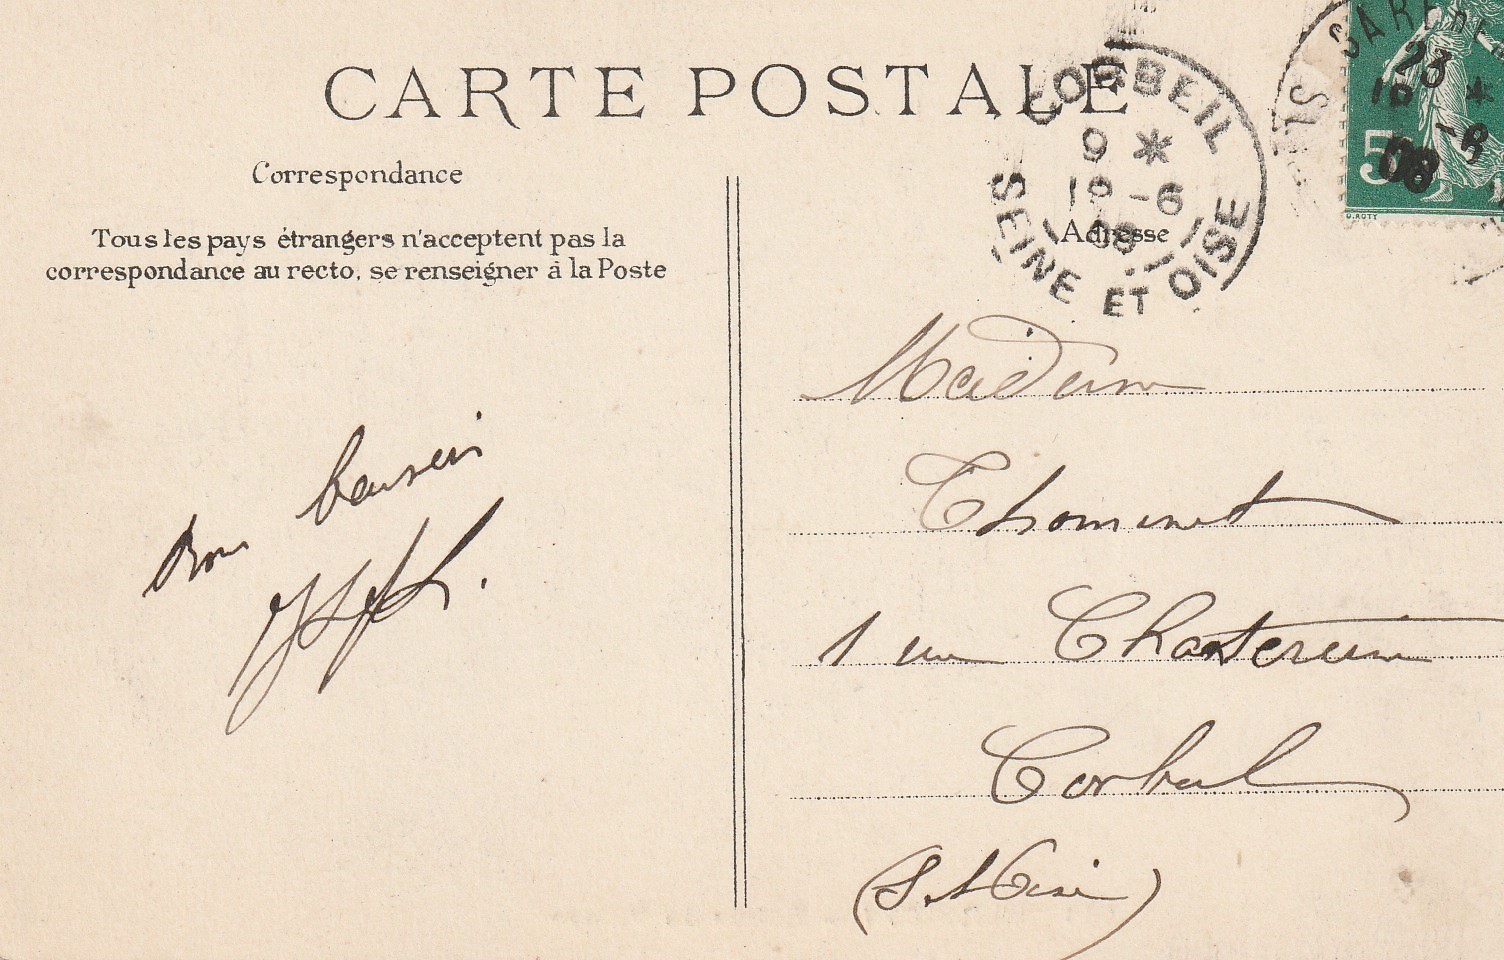 CARTE POSTALE
Correspondance
Tous les pays étrangers n'acceptent pas la
correspondance au recto, se renseigner à la Poste
CORBEIL
9 *
18 -6
08
SEINE ET OISE
Adresse
23
-6
08
5
O. ROTY
Bon
baiser
Madame
Thominet
1 rue Chantereine
Corbeil
(S. et Oise)